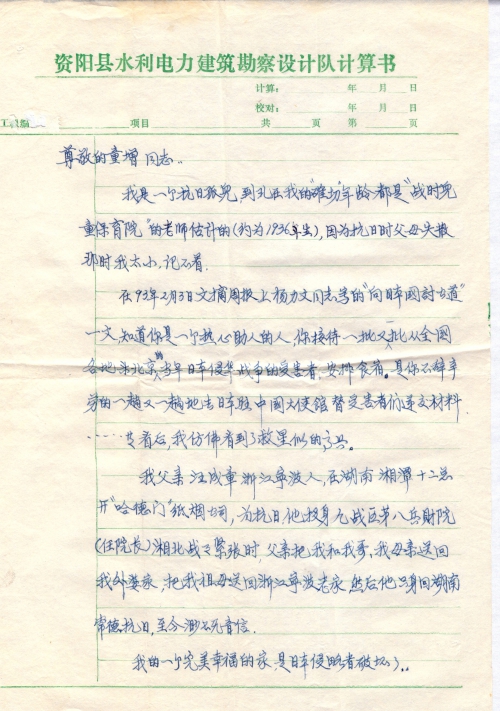 资阳县水利电力建筑勘察设计队计算书
计算： 年 月 日
校对： 年 月 日
项目 共 页 第 页
尊敬的童增同志：
我是一个抗日孤儿，到现在我的 年龄都是"战时儿
童保育院"的老师估计的(约为1936年生)，因为抗日时父母失散
那时我太小，记不着.
在93年2月3日文摘周报上杨力文同志写的"向日本国讨 道"
一文，知道你是一个热心助人的人，你接待一批又一批从全国
各地来北京的当年日本侵华战争的受害者，安排食宿。是你不辞辛
劳的一趟又一趟地去日本驻中国大使馆替受害者们递交材料
……
看后，我仿佛看到了救星似的高兴。
我父亲汪成章浙江宁波人，在湖南湘潭十二总
开"哈德门"纸烟公司，为抗日他投身九战区第八兵 院
(任院长)湘北战 紧张时，父亲把我和我哥，我母亲送回
我外婆家，把我祖母送回浙江宁波老家，然后他只身回湖南
常德抗日，至今渺无音信.
我的一个完美幸福的家是日本侵略者破坏了..